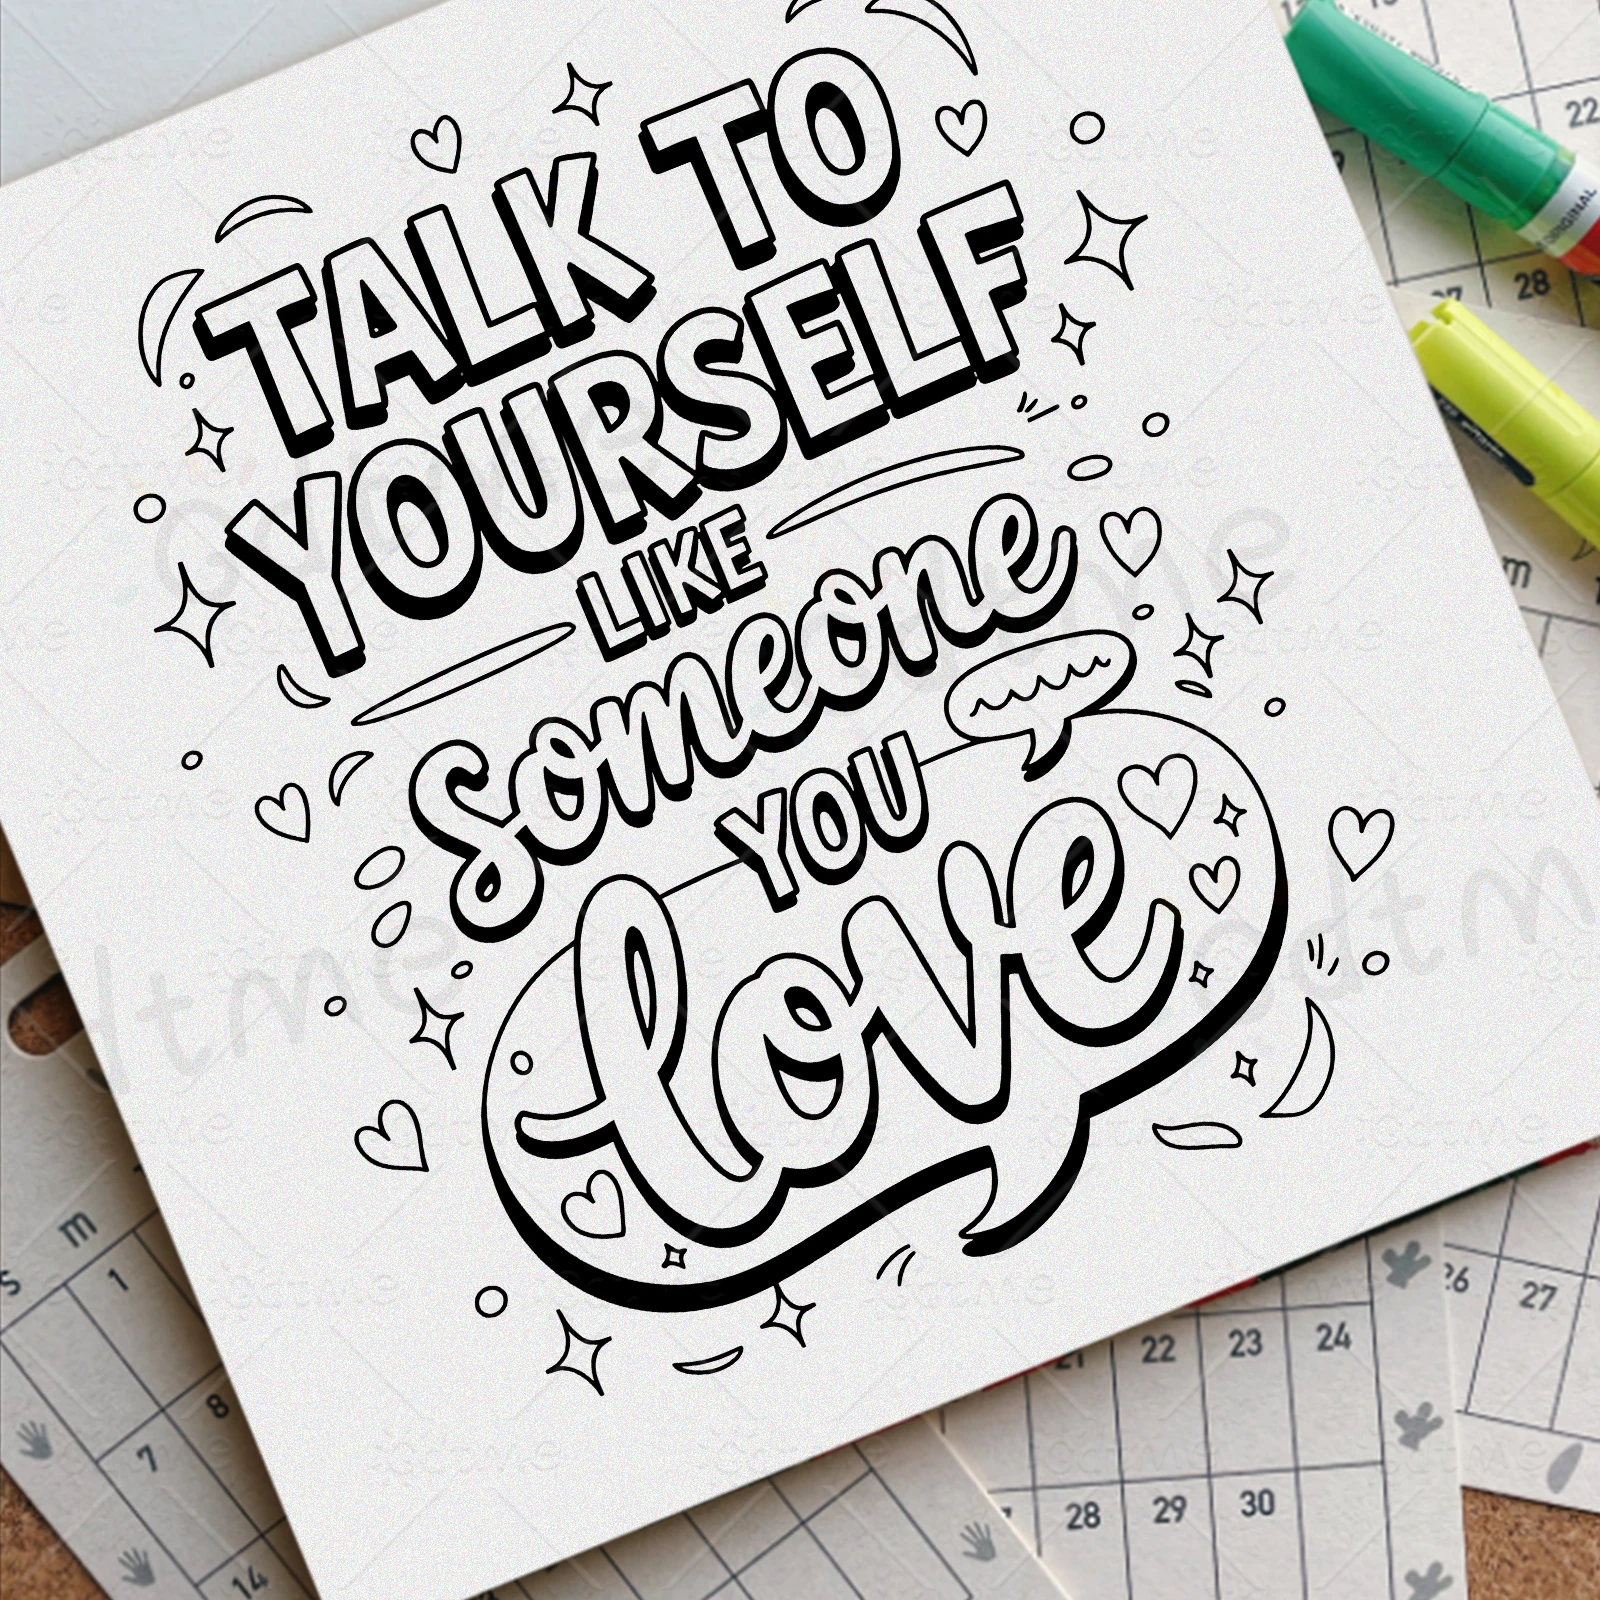 TALK TO
YOURSELF
LIKE
someone
YOU
love
22
28
ORIGINAL
m
m
S
1
7
8
14
21
22
23
24
26
27
28
29
30